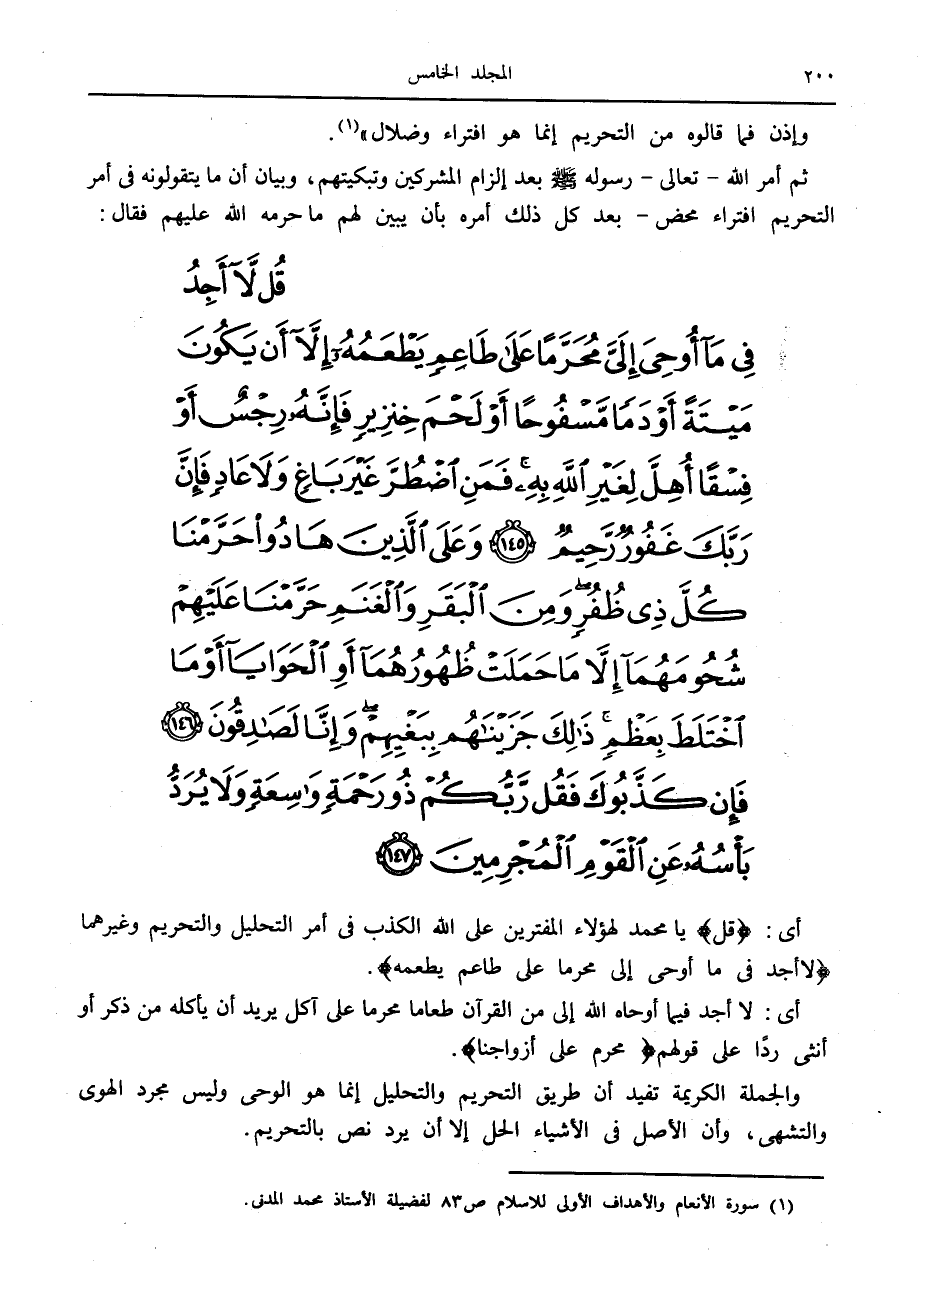 ٢٠٠ المجلد الخامس
وإذن فما قالوه من التحريم إنما هو افتراء وضلال»(١).
ثم أمر الله - تعالى - رسوله ﷺ بعد إلزام المشركين وتبكيتهم، وبيان أن ما يتقولونه فى أمر
التحريم افتراء محض - بعد كل ذلك أمره بأن يبين لهم ما حرمه الله عليهم فقال :
قُل لَّآ أَجِدُ
فِي مَآ أُوحِيَ إِلَيَّ مُحَرَّمًا عَلَىٰ طَاعِمٍ يَطْعَمُهُۥٓ إِلَّآ أَن يَكُونَ
مَيْتَةً أَوْ دَمًا مَّسْفُوحًا أَوْ لَحْمَ خِنزِيرٍ فَإِنَّهُۥ رِجْسٌ أَوْ
فِسْقًا أُهِلَّ لِغَيْرِ ٱللَّهِ بِهِۦۚ فَمَنِ ٱضْطُرَّ غَيْرَ بَاغٍ وَلَا عَادٍ فَإِنَّ
رَبَّكَ غَفُورٌ رَّحِيمٌ ١٤٥ وَعَلَى ٱلَّذِينَ هَادُوا۟ حَرَّمْنَا
كُلَّ ذِى ظُفُرٍۖ وَمِنَ ٱلْبَقَرِ وَٱلْغَنَمِ حَرَّمْنَا عَلَيْهِمْ
شُحُومَهُمَآ إِلَّا مَا حَمَلَتْ ظُهُورُهُمَآ أَوِ ٱلْحَوَايَآ أَوْ مَا
ٱخْتَلَطَ بِعَظْمٍۚ ذَٰلِكَ جَزَيْنَٰهُم بِبَغْيِهِمْۖ وَإِنَّا لَصَٰدِقُونَ ١٤٦
فَإِن كَذَّبُوكَ فَقُل رَّبُّكُمْ ذُو رَحْمَةٍ وَٰسِعَةٍ وَلَا يُرَدُّ
بَأْسُهُۥ عَنِ ٱلْقَوْمِ ٱلْمُجْرِمِينَ ١٤٧
أى : ﴿قل﴾ يا محمد لهؤلاء المفترين على الله الكذب فى أمر التحليل والتحريم وغيرهما
﴿لا أجد فى ما أوحى إلى محرما على طاعم يطعمه﴾.
أى : لا أجد فيما أوحاه الله إلى من القرآن طعاما محرما على آكل يريد أن يأكله من ذكر أو
أنثى ردًا على قولهم﴿ محرم على أزواجنا﴾.
والجملة الكريمة تفيد أن طريق التحريم والتحليل إنما هو الوحى وليس مجرد الهوى
والتشهى، وأن الأصل فى الأشياء الحل إلا أن يرد نص بالتحريم.
(١) سورة الأنعام والأهداف الأولى للاسلام ص٨٣ لفضيلة الأستاذ محمد المدنى.